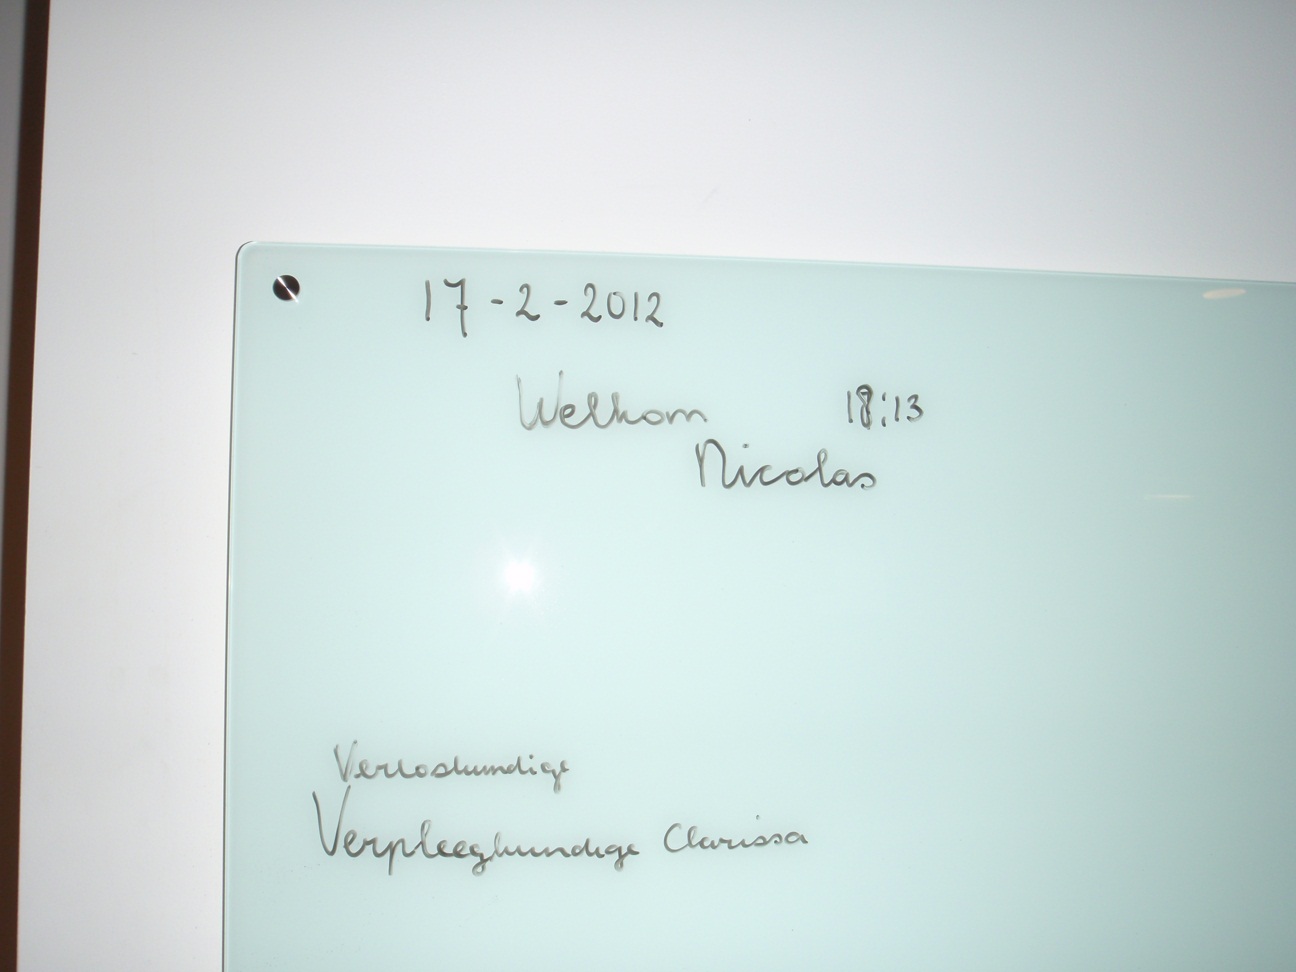 17-2-2012
Welkom 18:13
Nicolas
Verloskundige
Verpleegkundige Clarissa